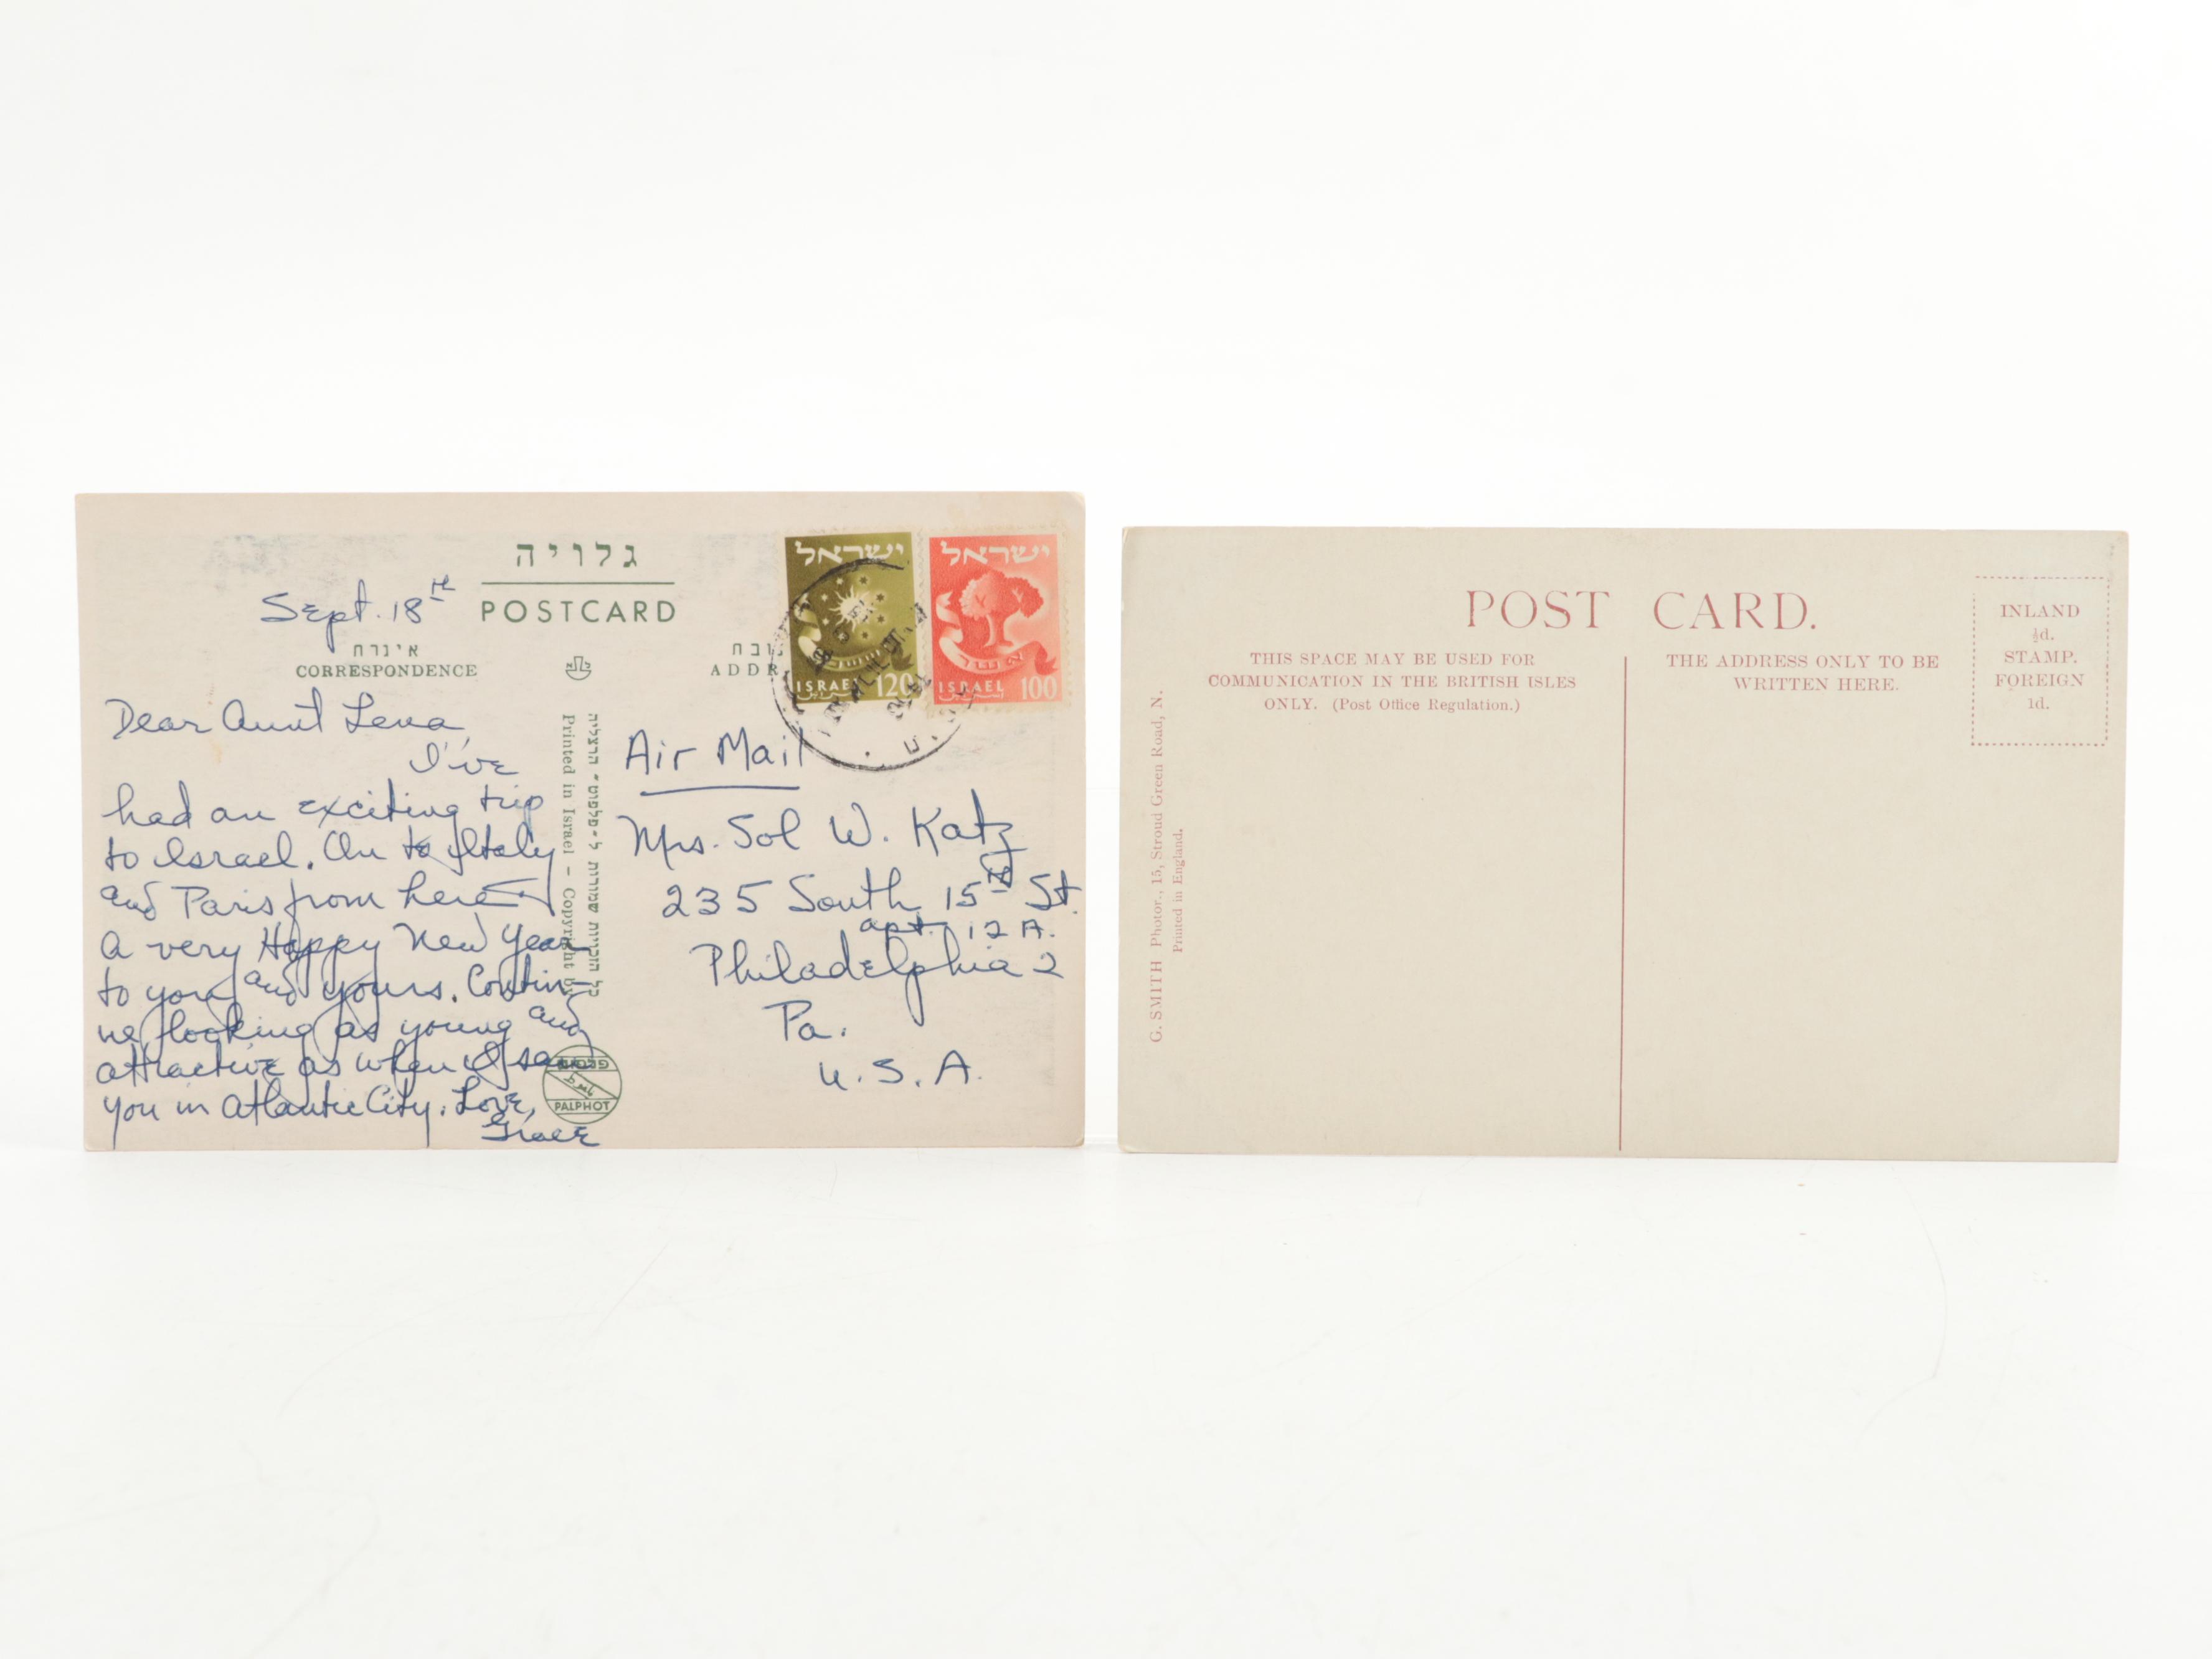 גלויה
POSTCARD
Sept. 18th
אגרת
CORRESPONDENCE
ADDR
ישראל
ISRAEL 120
ישראל
אשר
ISRAEL 100
Dear Aunt Lena,
I've
had an exciting trip
to Israel. On to Italy
and Paris from here
A very Happy New Year
to you and yours. Contin-
ue looking as young and
attractive as when I saw
you in Atlantic City. Love,
Grace
כל הזכויות שמורות ל-פלפוט" הרצליה
Printed in Israel – Copyright by
PALPHOT
Air Mail
Mrs. Sol W. Katz
235 South 15th St.
apt. 12 A.
Philadelphia 2
Pa.
U.S.A.
POST CARD.
THIS SPACE MAY BE USED FOR
COMMUNICATION IN THE BRITISH ISLES
ONLY. (Post Office Regulation.)
THE ADDRESS ONLY TO BE
WRITTEN HERE.
INLAND
½d.
STAMP.
FOREIGN
1d.
G. SMITH Photor., 15, Stroud Green Road, N.
Printed in England.